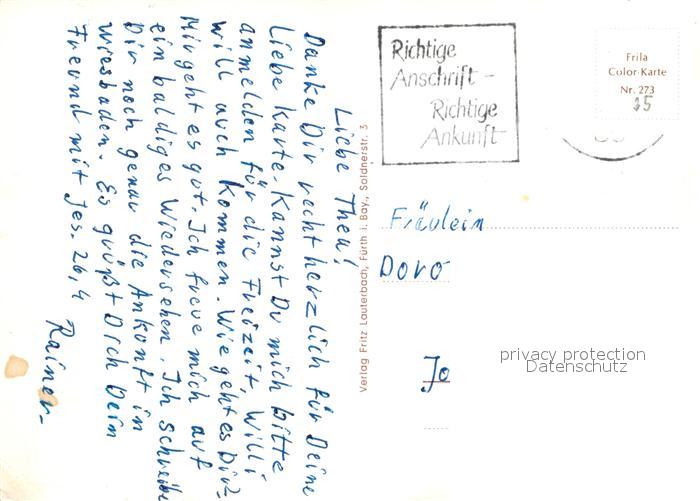 Liebe Theu!
Danke Dir recht herzlich für Deine
Liebe Karte. Kannst Du mich bitte
anmelden für die Freizeit, Willi
will auch kommen. Wie geht es Dir?
Mir geht es gut. Ich freue mich auf
ein baldiges Wiedersehen. Ich schreibe
Dir noch genau die Ankunft in
Wiesbaden. Es grüßt Dich Dein
Freund mit Jes. 26,4
Rainer.
Verlag Fritz Lauterbach, Fürth i. Bay., Soldnerstr. 3
Richtige
Anschrift -
Richtige
Ankunft
Frila
Color-Karte
Nr. 273
Fräulein
Doro
Jo
privacy protection
Datenschutz